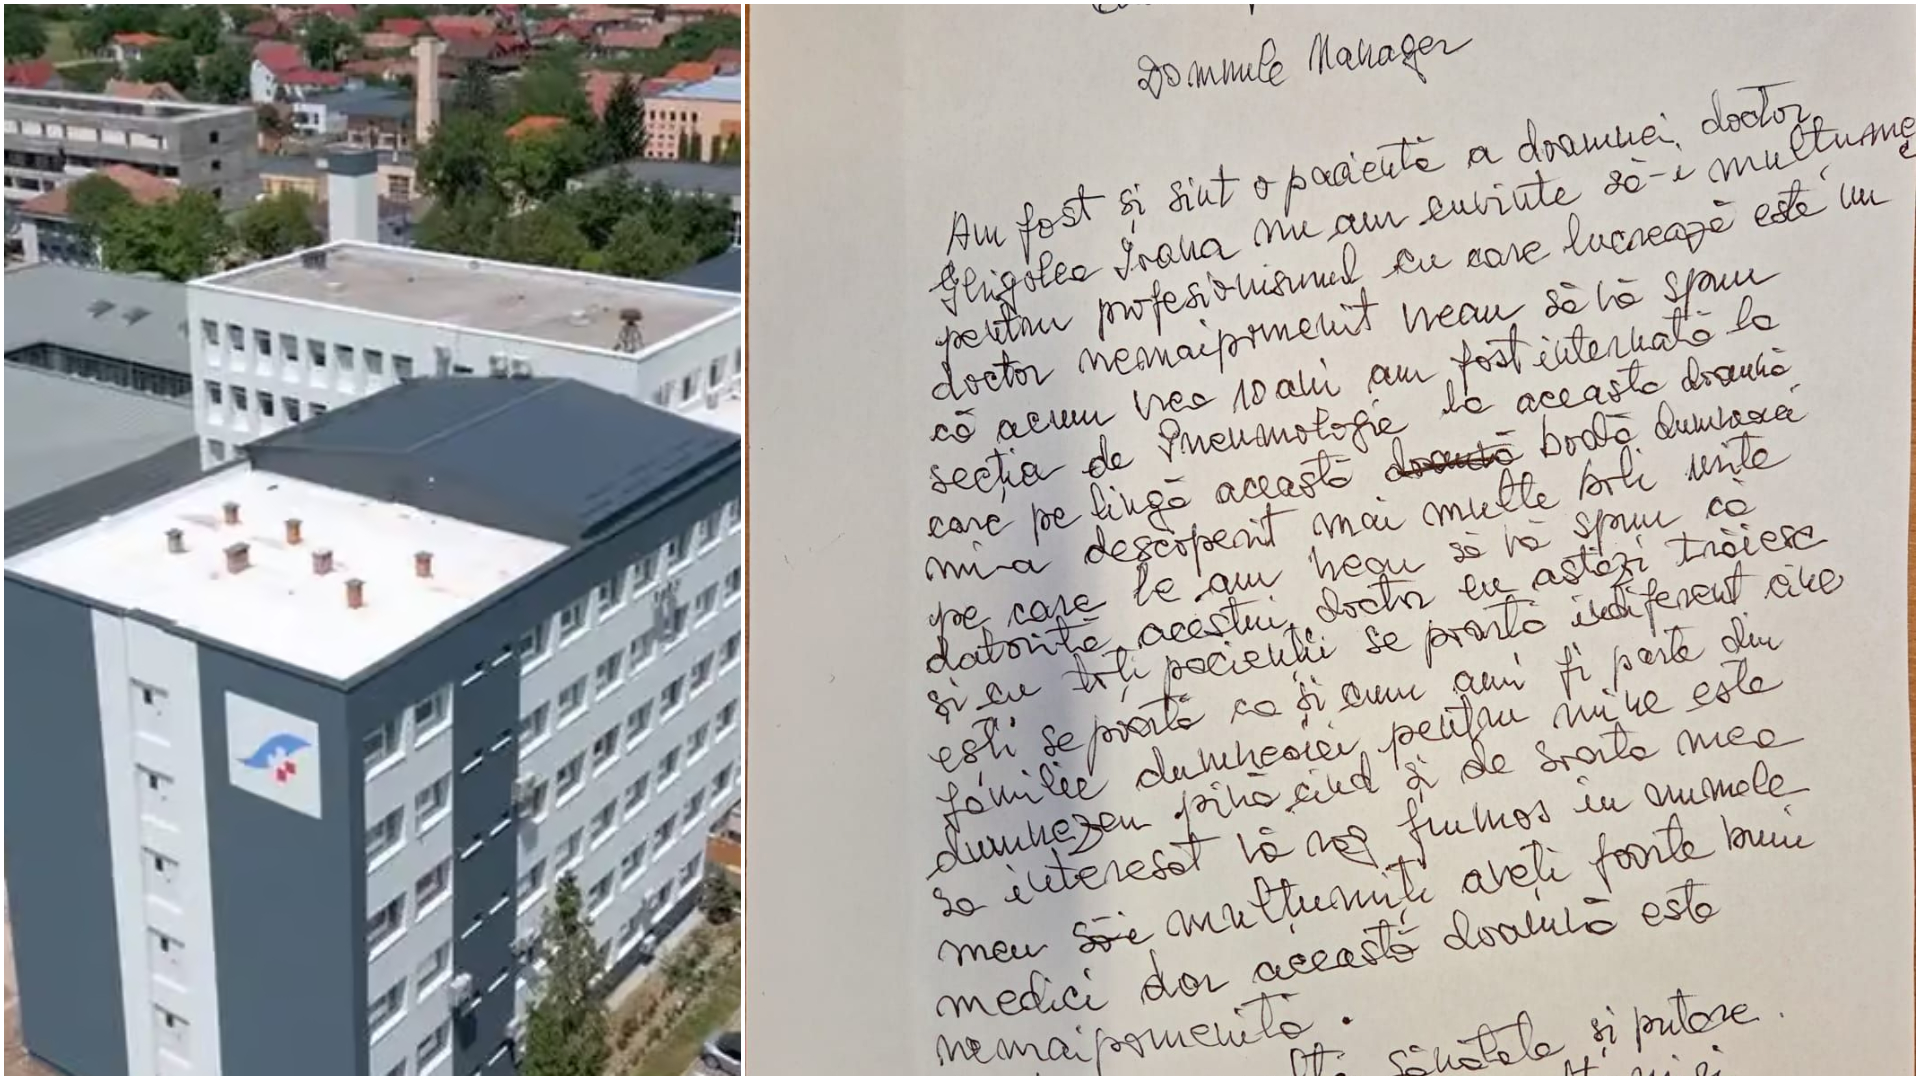 Domnule Manager
Am fost și sînt o pacientă a doamnei doctor
Ghigolea Ioana nu am cuvinte să-i mulțumesc
pentru profesionismul cu care lucrează este un
doctor nemaipomenit vreau să vă spun
că acum vreo 10 ani am fost internată la
secția de Pneumologie la aceasta doamnă
care pe lîngă această boală dumneaei
mi-a descoperit mai multe boli
pe care le am vreau să vă spun că
datorită acestui doctor eu astăzi trăiesc
și cu toți pacienții se poartă indiferent cine
ești se poartă ca și cum ami fi parte din
familie dumneaiei pentru mine este
dumnezeu pînă cînd și de soarta mea
sa interesat vă rog frumos în numele
meu săi mulțumiți aveți foarte buni
medici dar această doamnă este
nemaipomenită.
sănătate si putere.